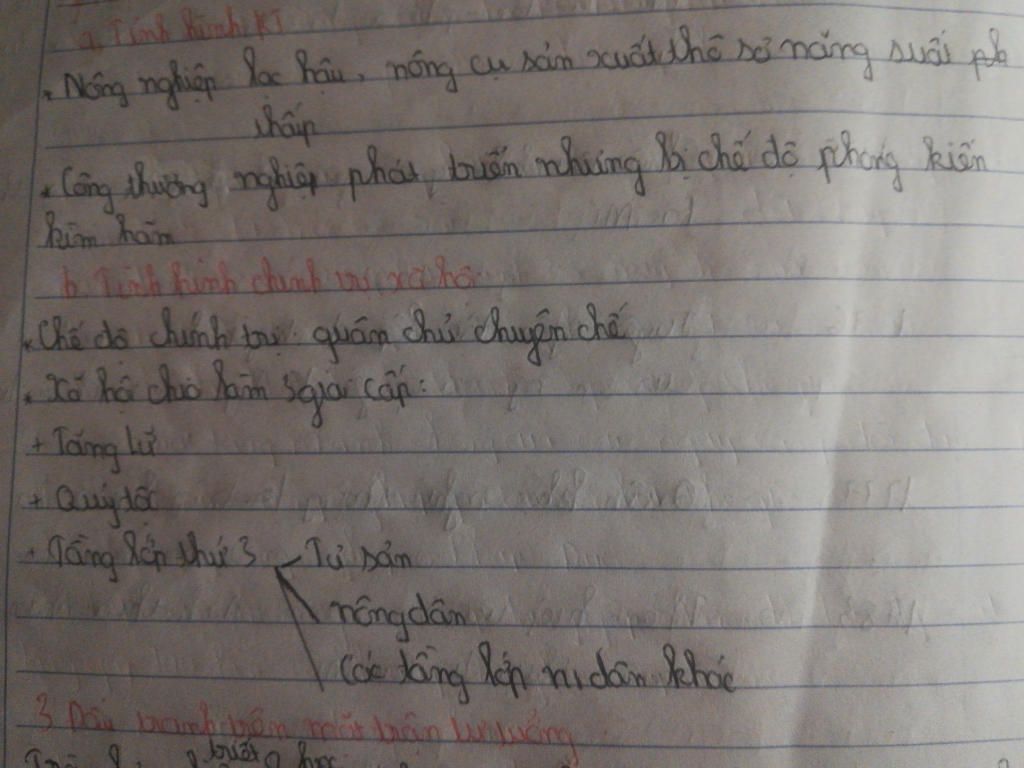 a. Tình hình KT
. Nông nghiệp lạc hậu, nông cụ sản xuất thô sơ năng suất
thấp
. Công thương nghiệp phát triển nhưng bị chế độ phong kiến
kìm hãm
b. Tình hình chính trị, xã hội
. Chế độ chính trị quân chủ chuyên chế
. Xã hội chia làm 3 giai cấp:
+ Tăng lữ
+ Quý tộc
+ Tầng lớp thứ 3 - Tư sản
nông dân
Các tầng lớp n, dân khác
3 Đấu tranh trên mặt trận tư tưởng
triết
học